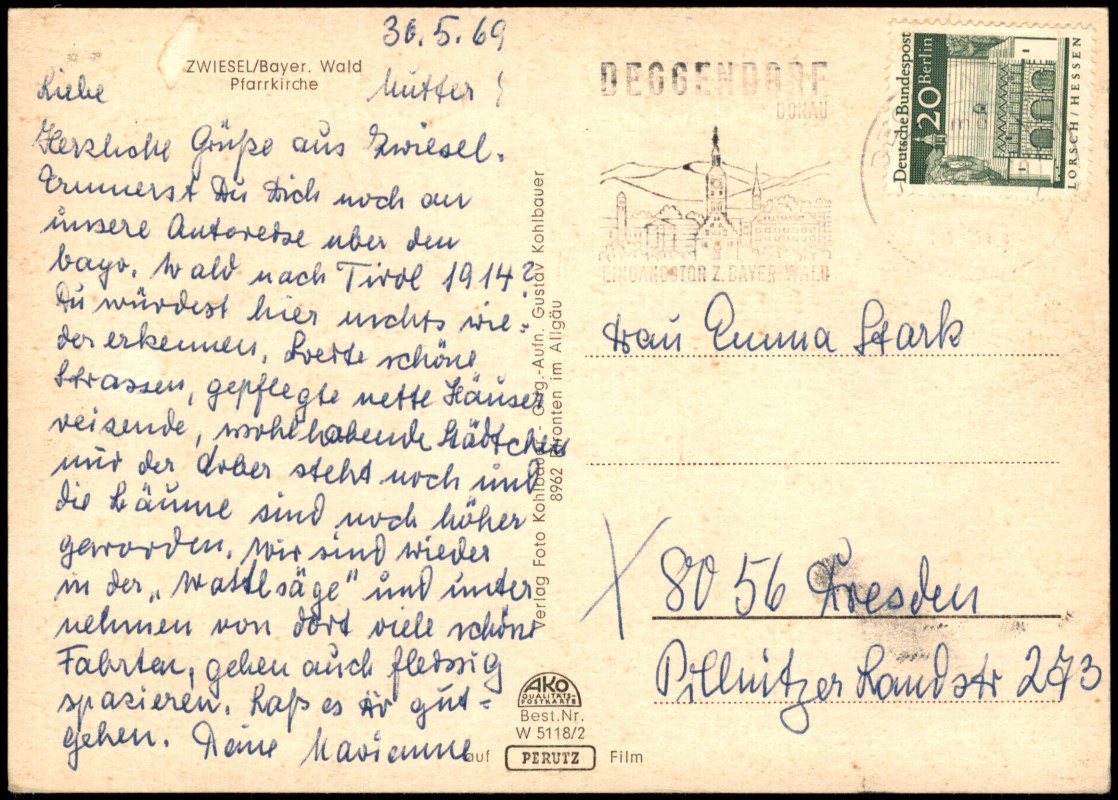 30.5.69
ZWIESEL/Bayer. Wald
Pfarrkirche
Liebe Mutter!
Herzliche Grüße aus Zwiesel.
Erinnerst Du Dich noch an
unsere Autoreise über den
bayr. Wald nach Tirol 1914?
Du würdest hier nichts wie-
der erkennen. Breite schöne
Strassen, gepflegte nette Häuser
reizende, wohlhabende Städtchen
nur der steht noch und
die Bäume sind noch höher
geworden. Wir sind wieder
in der „Wattlsäge" und unter
nehmen von dort viele schöne
Fahrten, gehen auch fleissig
spazieren. Laß es Dir gut-
gehen. Deine Marianne
Verlag Foto Kohlbauer - Orig.-Aufn. Gustav Kohlbauer
8962 Pfronten im Allgäu
AKO
QUALITÄTS-
POSTKARTE
Best.Nr.
W 5118/2
auf PERUTZ Film
DEGGENDORF
DONAU
EINGANGSTOR Z. BAYER. WALD
Deutsche Bundespost
20 Berlin
LORSCH/HESSEN
Frau Emma Stark
X 8056 Dresden
Pillnitzer Landstr 273